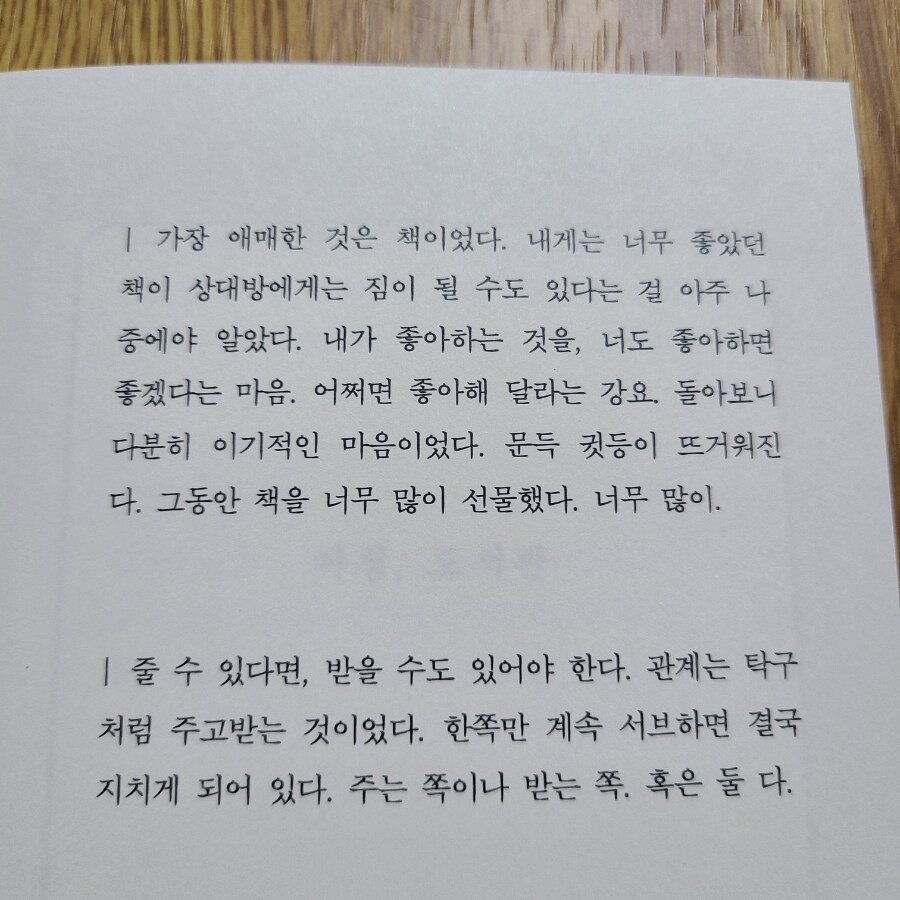 | 가장 애매한 것은 책이었다. 내게는 너무 좋았던
책이 상대방에게는 짐이 될 수도 있다는 걸 아주 나
중에야 알았다. 내가 좋아하는 것을, 너도 좋아하면
좋겠다는 마음. 어쩌면 좋아해 달라는 강요. 돌아보니
다분히 이기적인 마음이었다. 문득 귓등이 뜨거워진
다. 그동안 책을 너무 많이 선물했다. 너무 많이.
| 줄 수 있다면, 받을 수도 있어야 한다. 관계는 탁구
처럼 주고받는 것이었다. 한쪽만 계속 서브하면 결국
지치게 되어 있다. 주는 쪽이나 받는 쪽. 혹은 둘 다.